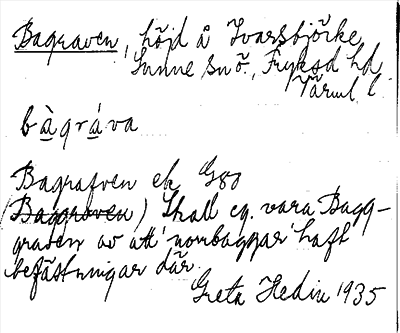 Bagraven, höjd å Ivarsbjörke
Sunne sn ö., Fryksd. hd
Värml. l.
bàgráva
Bagrafven ek G80
(Baggraven) Skall eg. vara Bagg-
graven av att norrbaggar haft
befästningar där.
Greta Hedin 1935